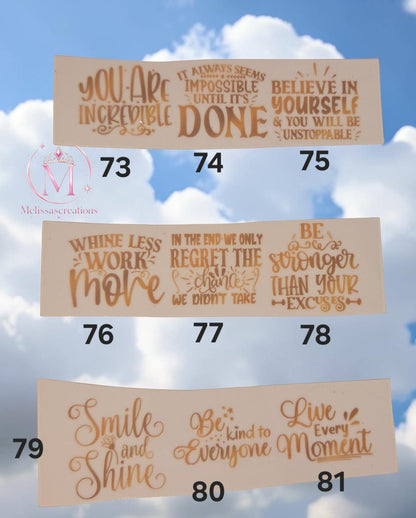 YOU ARE
INCREDIBLE
IT ALWAYS SEEMS
IMPOSSIBLE
UNTIL IT'S
DONE
BELIEVE IN
YOURSELF
& YOU WILL BE
UNSTOPPABLE
73
74
75
M
Melissascreations
WHINE LESS
WORK
more
IN THE END WE ONLY
REGRET THE
chance
WE DIDN'T TAKE
BE
stronger
THAN YOUR
EXCUSES
76
77
78
Smile
and
Shine
Be
kind to
Everyone
Live
Every
Moment
79
80
81